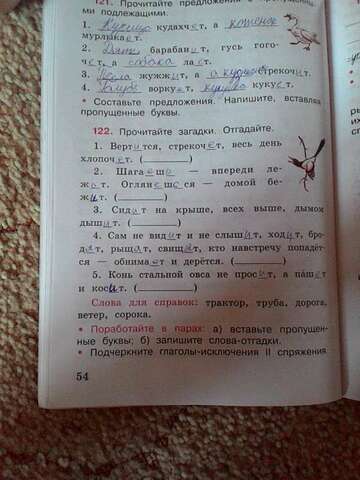 121. Прочитайте предложения с пропущенны-
ми подлежащими.
1. Курица кудахчет, а котёнок
мурлыкает.
2. Дятел барабанит, гусь гого-
чет, а собака лает.
3. Пчела жужжит, а стрекочит.
4. Голубь воркует, кукушка кукует.
• Составьте предложения. Напишите, вставляя
пропущенные буквы.
122. Прочитайте загадки. Отгадайте.
1. Вертится, стрекочет, весь день
хлопочет. (
)
2. Шагаешь — впереди ле-
жит. Оглянешься — домой бе-
жит. (
)
3. Сидит на крыше, всех выше, дымом
дышит. (
)
4. Сам не видит и не слышит, ходит, бро-
дит, рыщат, свищат, кто навстречу попадёт-
ся — обнимает и дерётся. (
)
5. Конь стальной овса не просит, а пашет
и косит. (
)
Слова для справок: трактор, труба, дорога,
ветер, сорока.
• Поработайте в парах: а) вставьте пропущен-
ные буквы; б) запишите слова-отгадки.
• Подчеркните глаголы-исключения II спряжения.
54